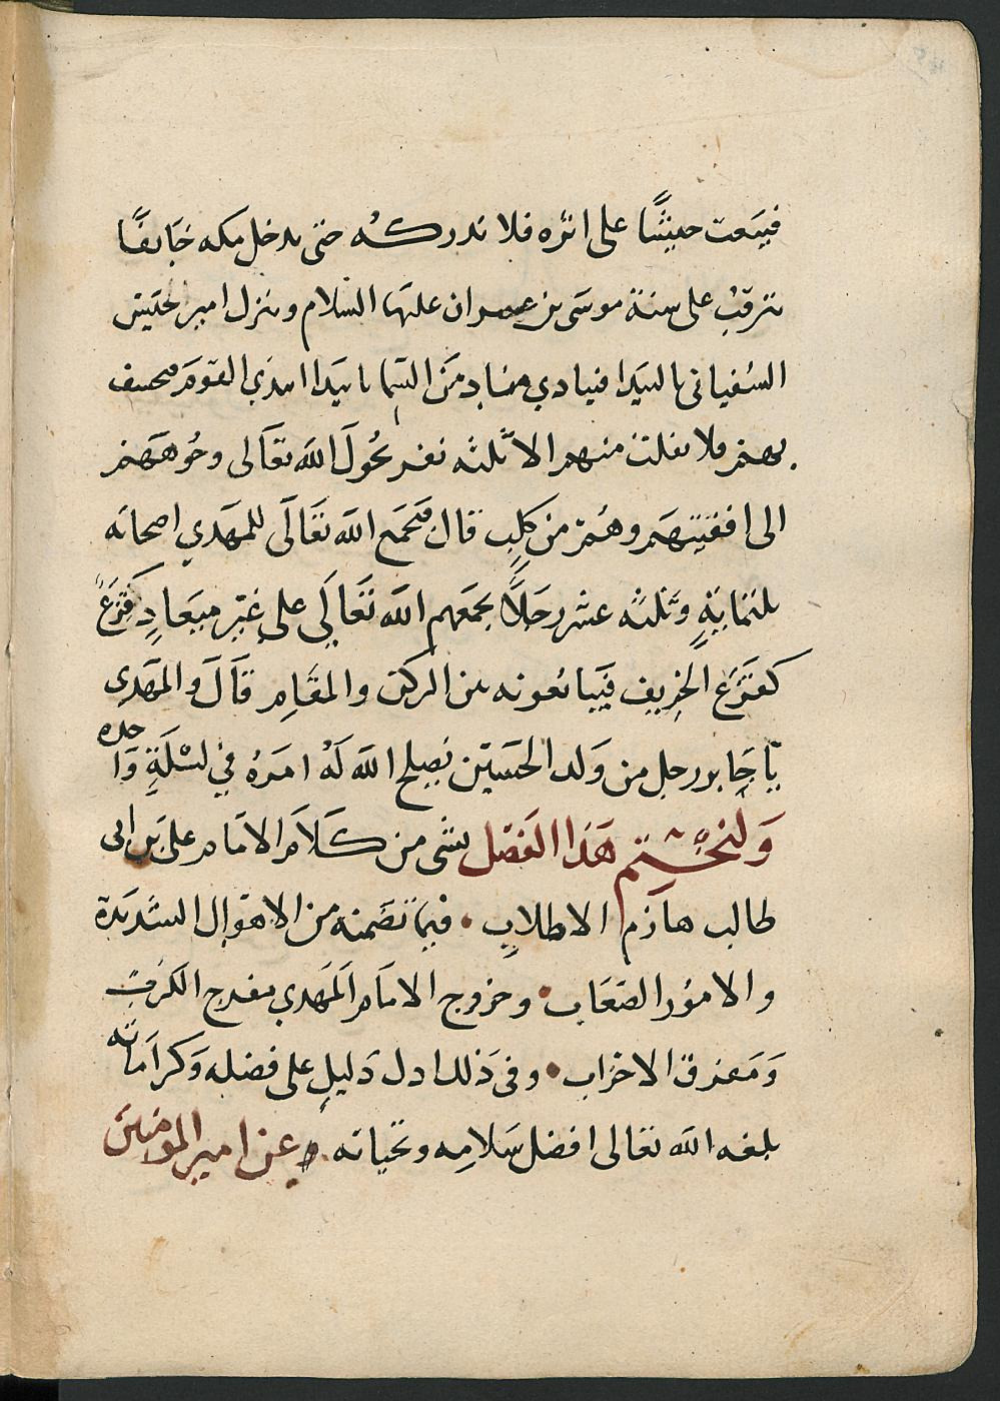 فيبعث جيشًا على اثره فلا تدركه حتى يدخل مكه خايفًا
يترقب على سنة موسى بن عمران عليهما السلام وينزل امير الجيش
السفيانى بالبيدا فينادي مناد من السما يا بيدا ابيدي القوم فيخسف
بهم فلا يفلت منهم الا ثلثه نفر يحول الله تعالى وجوههم
الى اقفيتهم وهم من كلب قال فيجمع الله تعالى للمهدي اصحابه
ثلثماية وثلثه عشر رجلا يجمعهم الله تعالى على غير ميعاد قزع
كقزع الخريف فيبايعونه بين الركن والمقام قال والمهدى
يا جابر رجل من ولد الحسين يصلح الله له امره في ليلة واحده
ولنختم هذا الفصل بشى من كلام الامام على بن ابى
طالب هازم الاطلاب • فيما تضمنه من الاهوال الشديدة
والامور الصعاب • وخروج الامام المهدي مفرج الكرب
ومفرق الاحزاب • وفى ذلك ادل دليل على فضله وكراماته
بلغه الله تعالى افضل سلامه وتحياته • وعن امير المومنين